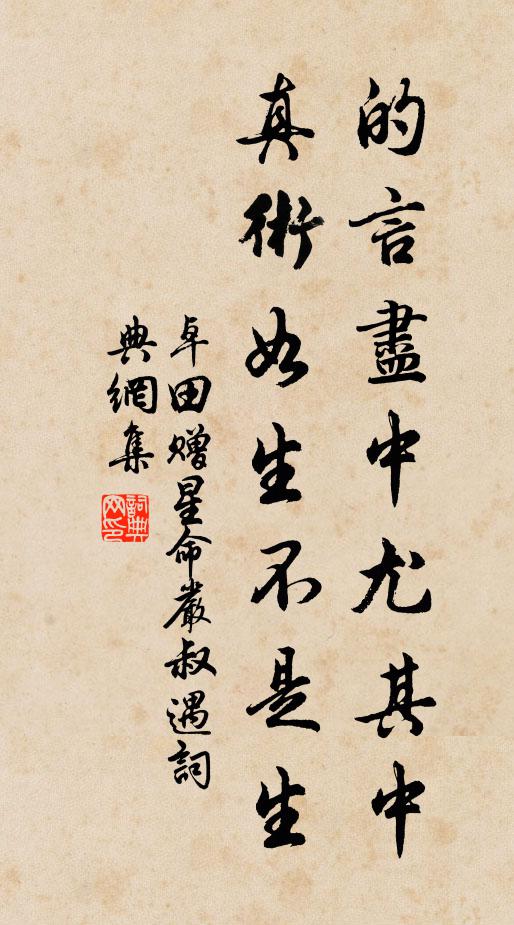 的言盡中尤其中
真術如生不是生
卓田贈星命嚴叔遇詞
典網集
詞典網印